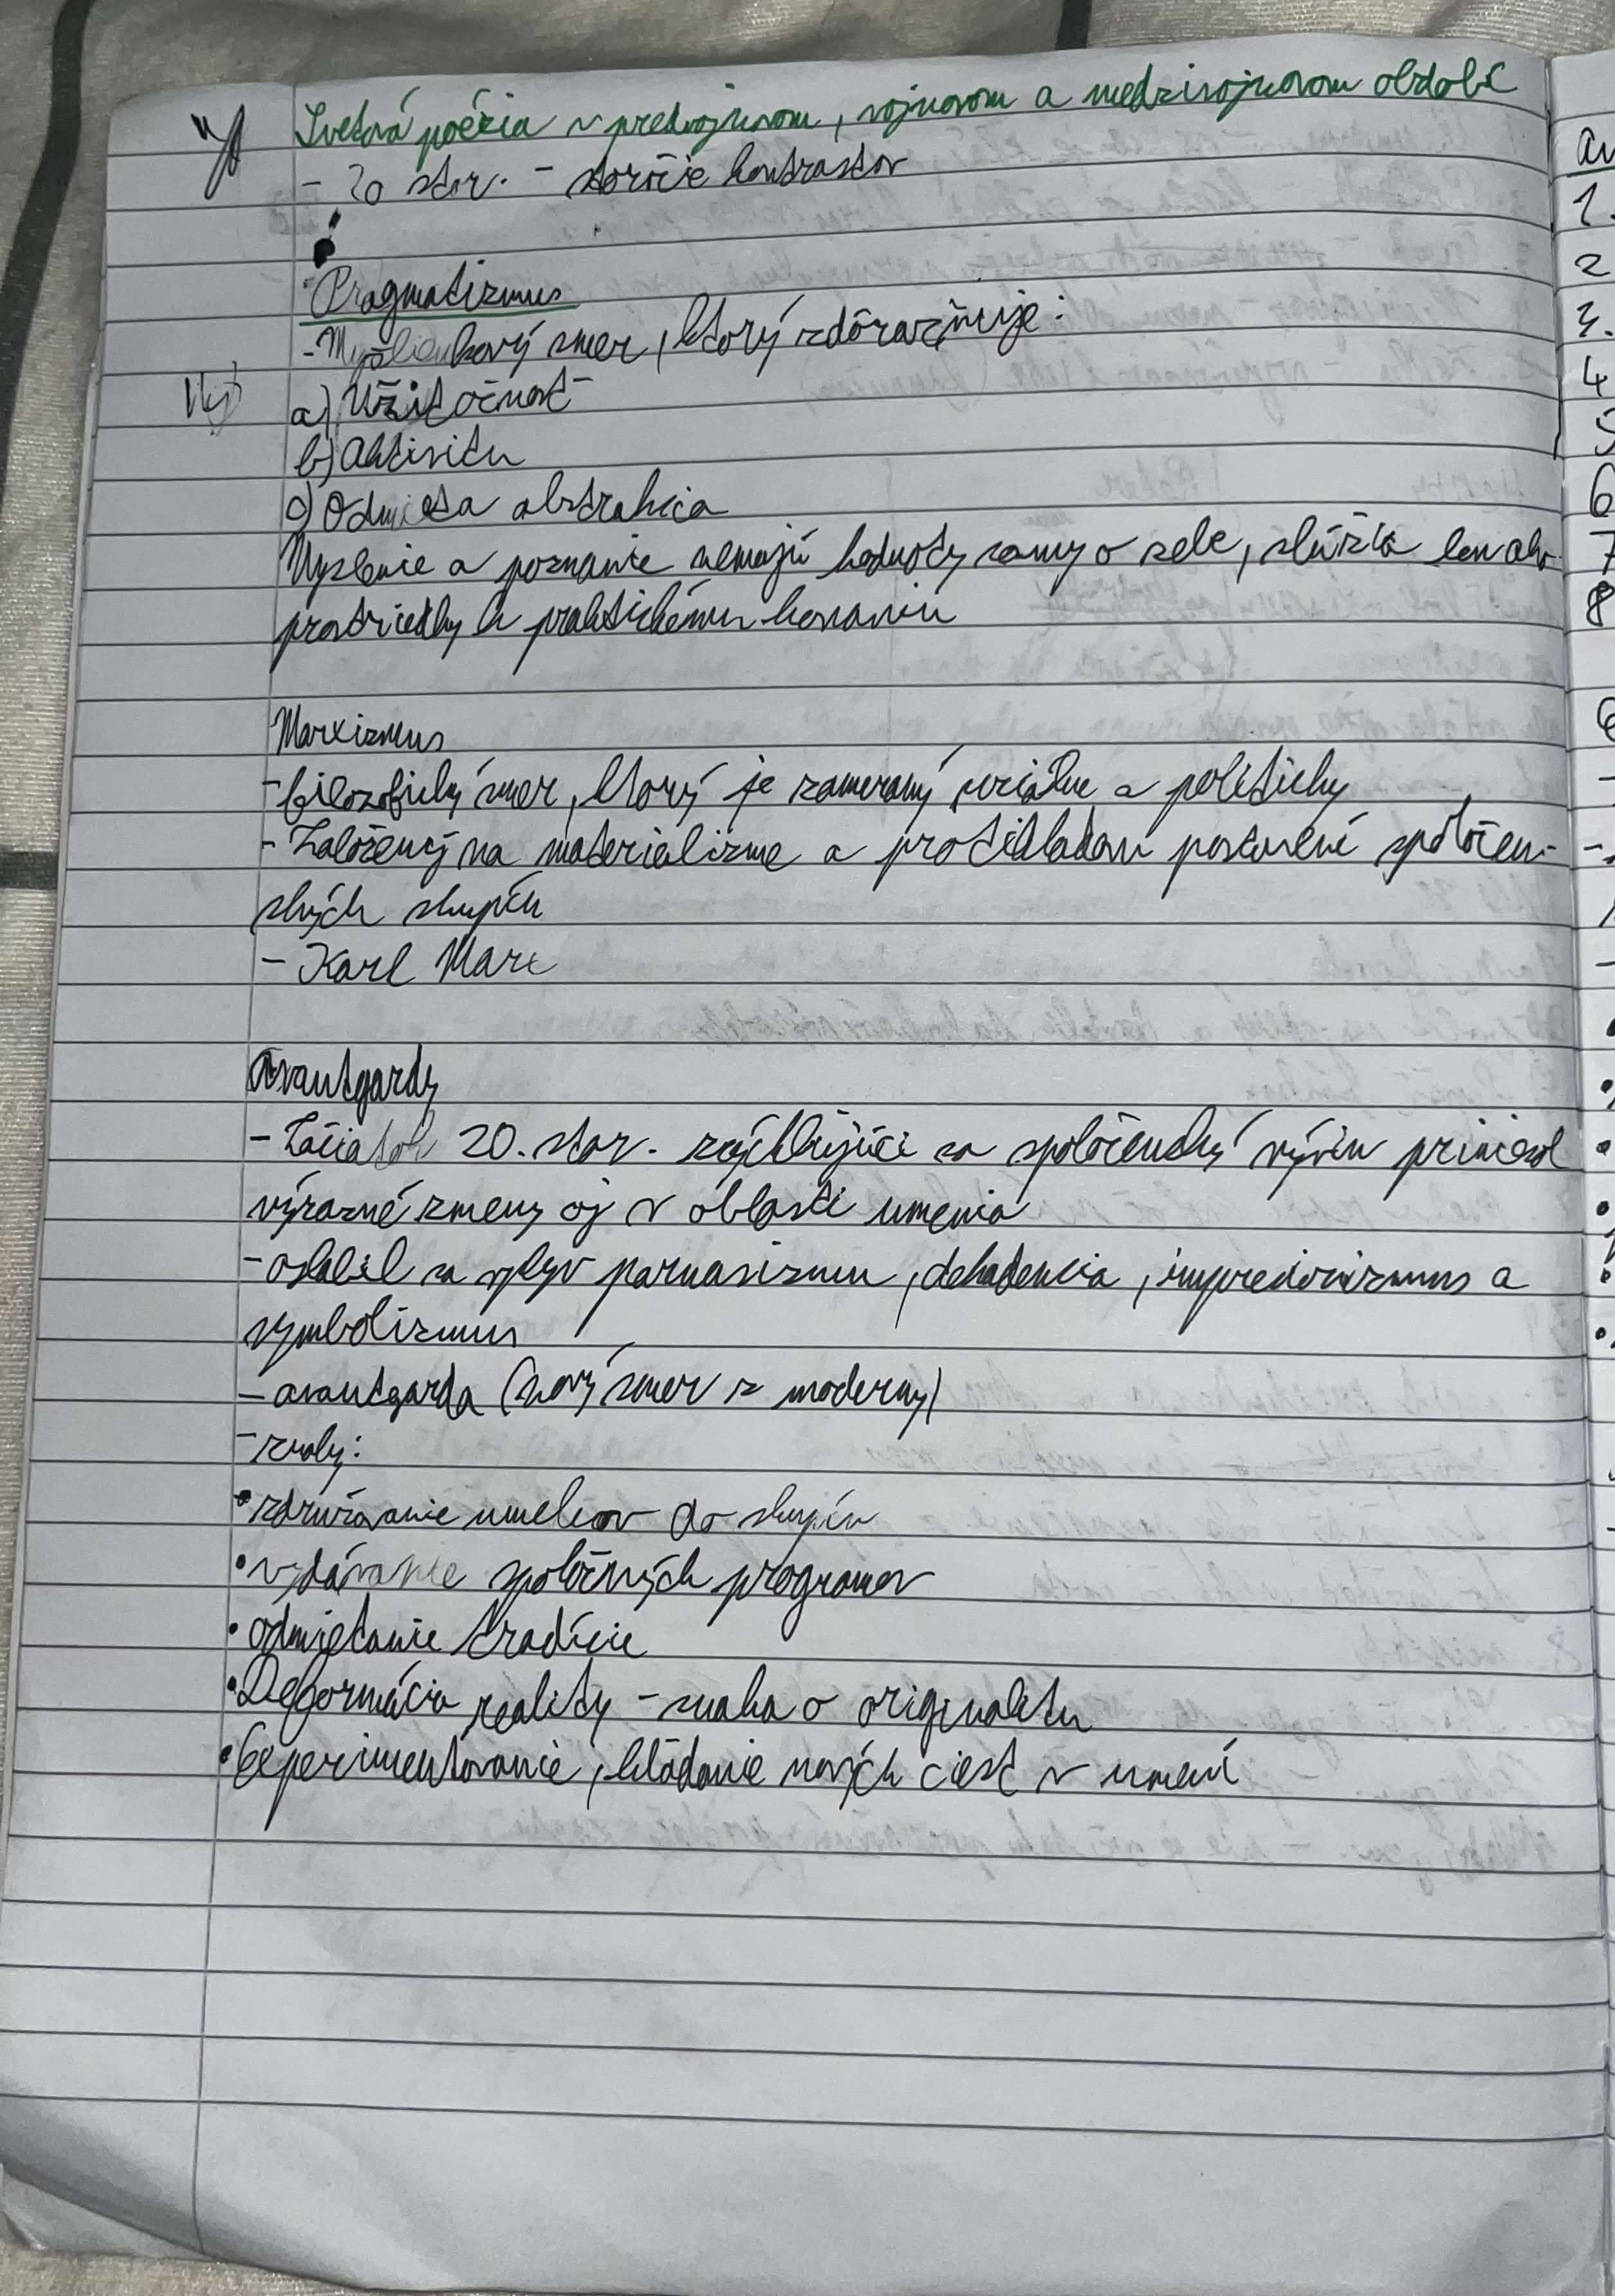 Svetová poézia v predvojnovom, vojnovom a medzivojnovom období
- 20 stor. - storočie kontrastov
Pragmatizmus
- Myšlienkový smer, ktorý zdôrazňuje:
a) Užitočnosť
b) Aktivitu
c) Odmieta abstrakcia
Myslenie a poznanie nemajú hodnoty samy o sebe, slúžia len ako
prostriedky k praktickému konaniu
Marxizmus
- filozofický smer, ktorý je zameraný sociálne a politicky
- Založený na materializme a protikladom postavení spoločen-
ských skupín
- Karl Marx
Avantgardy
- Začiatok 20. stor. zrýchľujúci sa spoločenský vývin priniesol
výrazné zmeny aj v oblasti umenia
- oslabil sa vplyv parnasizmu, dekadencia, impresionizmus a
symbolizmus
- avantgarda (nový smer z moderny)
- znaky:
• združovanie umelcov do skupín
• vydávanie spoločných programov
• odmietanie tradície
• Deformácia reality - snaha o originalitu
• Experimentovanie, hľadanie nových ciest v umení
1.
2
3.
4
5
6
7
8